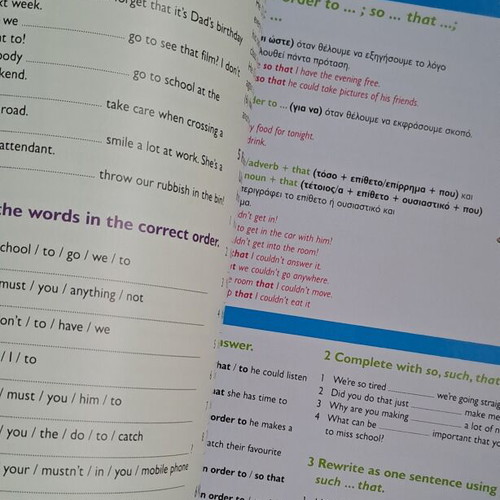 xt week.
we
get that it's Dad's birthday
go to see that film! I don't
t to!
body
go to school at the
kend.
take care when crossing a
road.
smile a lot at work. She's a
attendant.
throw our rubbish in the bin!
the words in the correct order.
chool / to / go / we / to
must / you / anything / not
on't / to / have / we
/ I / to
/ must / you / him / to
/ you / the / do / to / catch
your / mustn't / in / you / mobile phone
order to ... ; so ... that ...;
...
ώστε) όταν θέλουμε να εξηγήσουμε το λόγο
λουθεί πάντα πρόταση.
so that I have the evening free.
so that he could take pictures of his friends.
er to ... (για να) όταν θέλουμε να εκφράσουμε σκοπό.
y food for tonight.
drink.
/adverb + that (τόσο + επίθετο/επίρρημα + που) και
noun + that (τέτοιος/α + επίθετο + ουσιαστικό + που)
περιγράφει το επίθετο ή ουσιαστικό και
μα.
dn't get in!
to get in the car with him!
ldn't get into the room!
that I couldn't answer it.
t we couldn't go anywhere.
e room that I couldn't move.
p that I couldn't eat it
answer.
hat / to he could listen
hat she has to time
order to he makes a
atch their favourite
n order to / so that
n order to /
2 Complete with so, such, that
1 We're so tired we're going straig
2 Did you do that just make me
3 Why are you making a lot of n
4 What can be important that yo
to miss school?
3 Rewrite as one sentence using
such ... that.